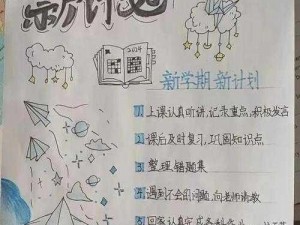 新计划
2024
新学期 新计划
1 上课认真听讲,记录重点,积极发言
2 课后及时复习,巩固知识点
3 整理错题集
4 遇到不会的问题,向老师请教
5 回家认真完成